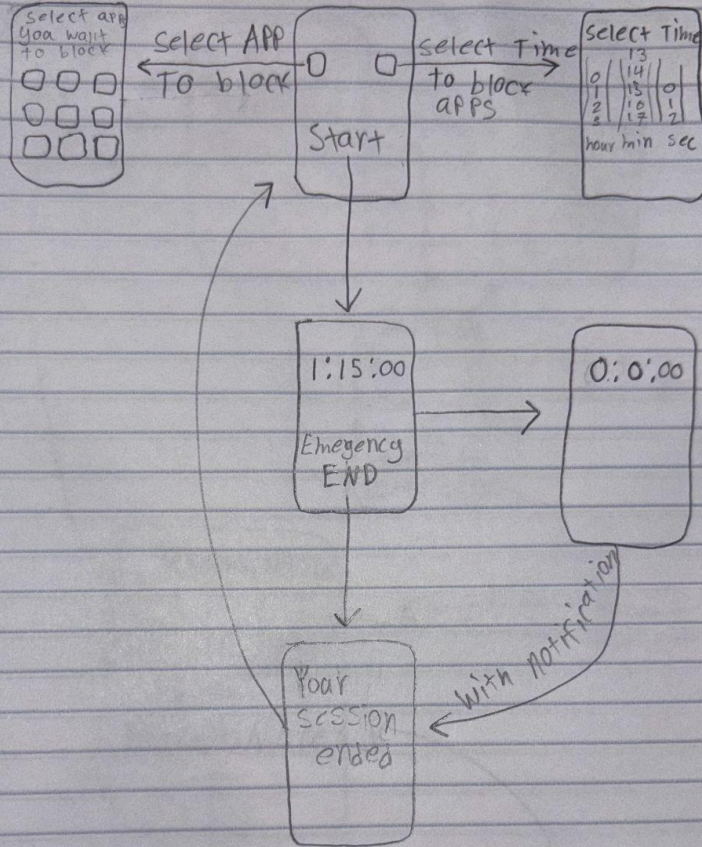 select app
you want
to block
Select APP
To block
Start
Select Time
to block
apps
Select Time
13
0 14
1 15 0
2 16 1
3 17 2
hour min sec
1:15:00
Emegency
END
0:0:00
With notification
Your
session
ended